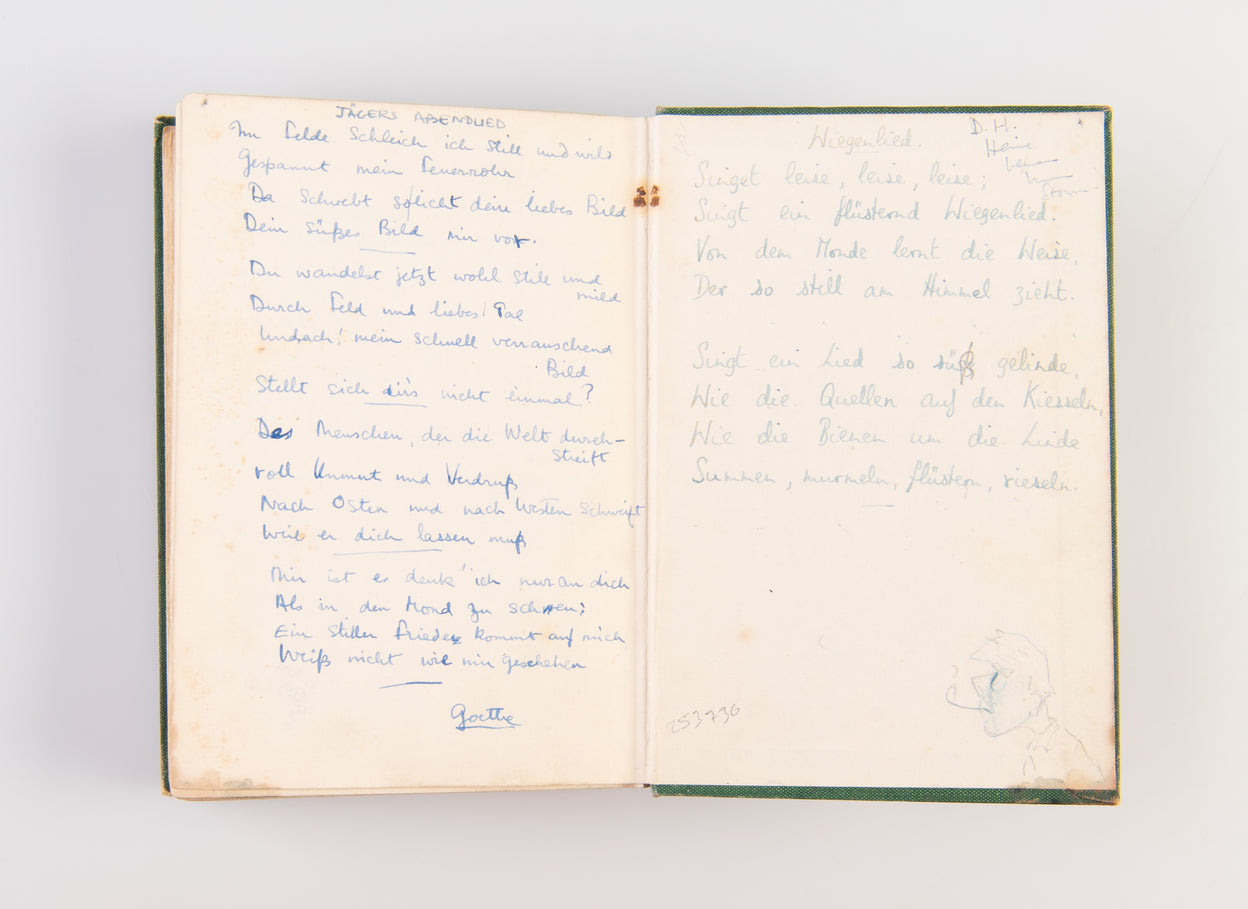 JÄGERS ABENDLIED
Im Felde Schleich ich still und wild
Gespannt mein Feuerrohr
Da Schwebt so licht dein liebes Bild
Dein süßes Bild mir vor.
Du wandelst jetzt wohl still und
mild
Durch Feld und liebes Tal
Und ach! mein schnell verrauschend
Bild
Stellt sich dir's nicht einmal?
Des Menschen, der die Welt durch-
streift
voll Unmut und Verdruß
Nach Osten und nach Westen schweift
Weil er dich lassen muß
Mir ist es denk' ich nur an dich
Als in den Mond zu sehen;
Ein stiller Friede kommt auf mich
Weiß nicht wie mir geschehen
Goethe
Wiegenlied.
D. H.
Heine
Storm
Singet leise, leise, leise;
Singt ein flüsternd Wiegenlied.
Von dem Monde lernt die Weise,
Der so still am Himmel zieht.
Singt ein Lied so süß gelinde,
Wie die Quellen auf den Kieseln,
Wie die Bienen um die Linde
Summen, murmeln, flüstern, rieseln.
253736